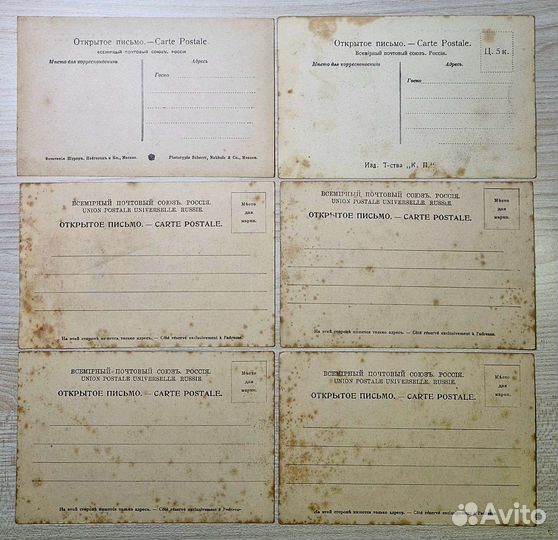 Открытое письмо. — Carte Postale.
ВСЕМІРНЫЙ ПОЧТОВЫЙ СОЮЗЪ. РОССІЯ
Мѣсто для корреспонденціи
Адресъ
Госпо
Фототипія Шереръ, Набгольцъ и Ко., Москва.
Phototypie Scherer, Nabholz & Co., Moscou.
Открытое письмо. — Carte Postale.
Всемірный почтовый союзъ. Россія.
Ц. 5 к.
Мѣсто для корреспонденціи
Адресъ
Госпо
Изд. Т-ства „К. П."
ВСЕМІРНЫЙ ПОЧТОВЫЙ СОЮЗЪ. РОССІЯ.
UNION POSTALE UNIVERSELLE. RUSSIE.
ОТКРЫТОЕ ПИСЬМО. — CARTE POSTALE.
Мѣсто
для
марки.
На этой сторонѣ пишется только адресъ. — Côté réservé exclusivement à l'adresse.
ВСЕМІРНЫЙ ПОЧТОВЫЙ СОЮЗЪ. РОССІЯ.
UNION POSTALE UNIVERSELLE. RUSSIE.
ОТКРЫТОЕ ПИСЬМО. — CARTE POSTALE.
Мѣсто
для
марки.
На этой сторонѣ пишется только адресъ. — Côté réservé exclusivement à l'adresse.
ВСЕМІРНЫЙ ПОЧТОВЫЙ СОЮЗЪ. РОССІЯ.
UNION POSTALE UNIVERSELLE. RUSSIE.
ОТКРЫТОЕ ПИСЬМО. — CARTE POSTALE.
Мѣсто
для
марки.
На этой сторонѣ пишется только адресъ. — Côté réservé exclusivement à l'adresse.
ВСЕМІРНЫЙ ПОЧТОВЫЙ СОЮЗЪ. РОССІЯ.
UNION POSTALE UNIVERSELLE. RUSSIE.
ОТКРЫТОЕ ПИСЬМО. — CARTE POSTALE.
Мѣсто
для
марки.
На этой сторонѣ пишется только адресъ. — Côté réservé exclusivement à l'adresse.
Avito